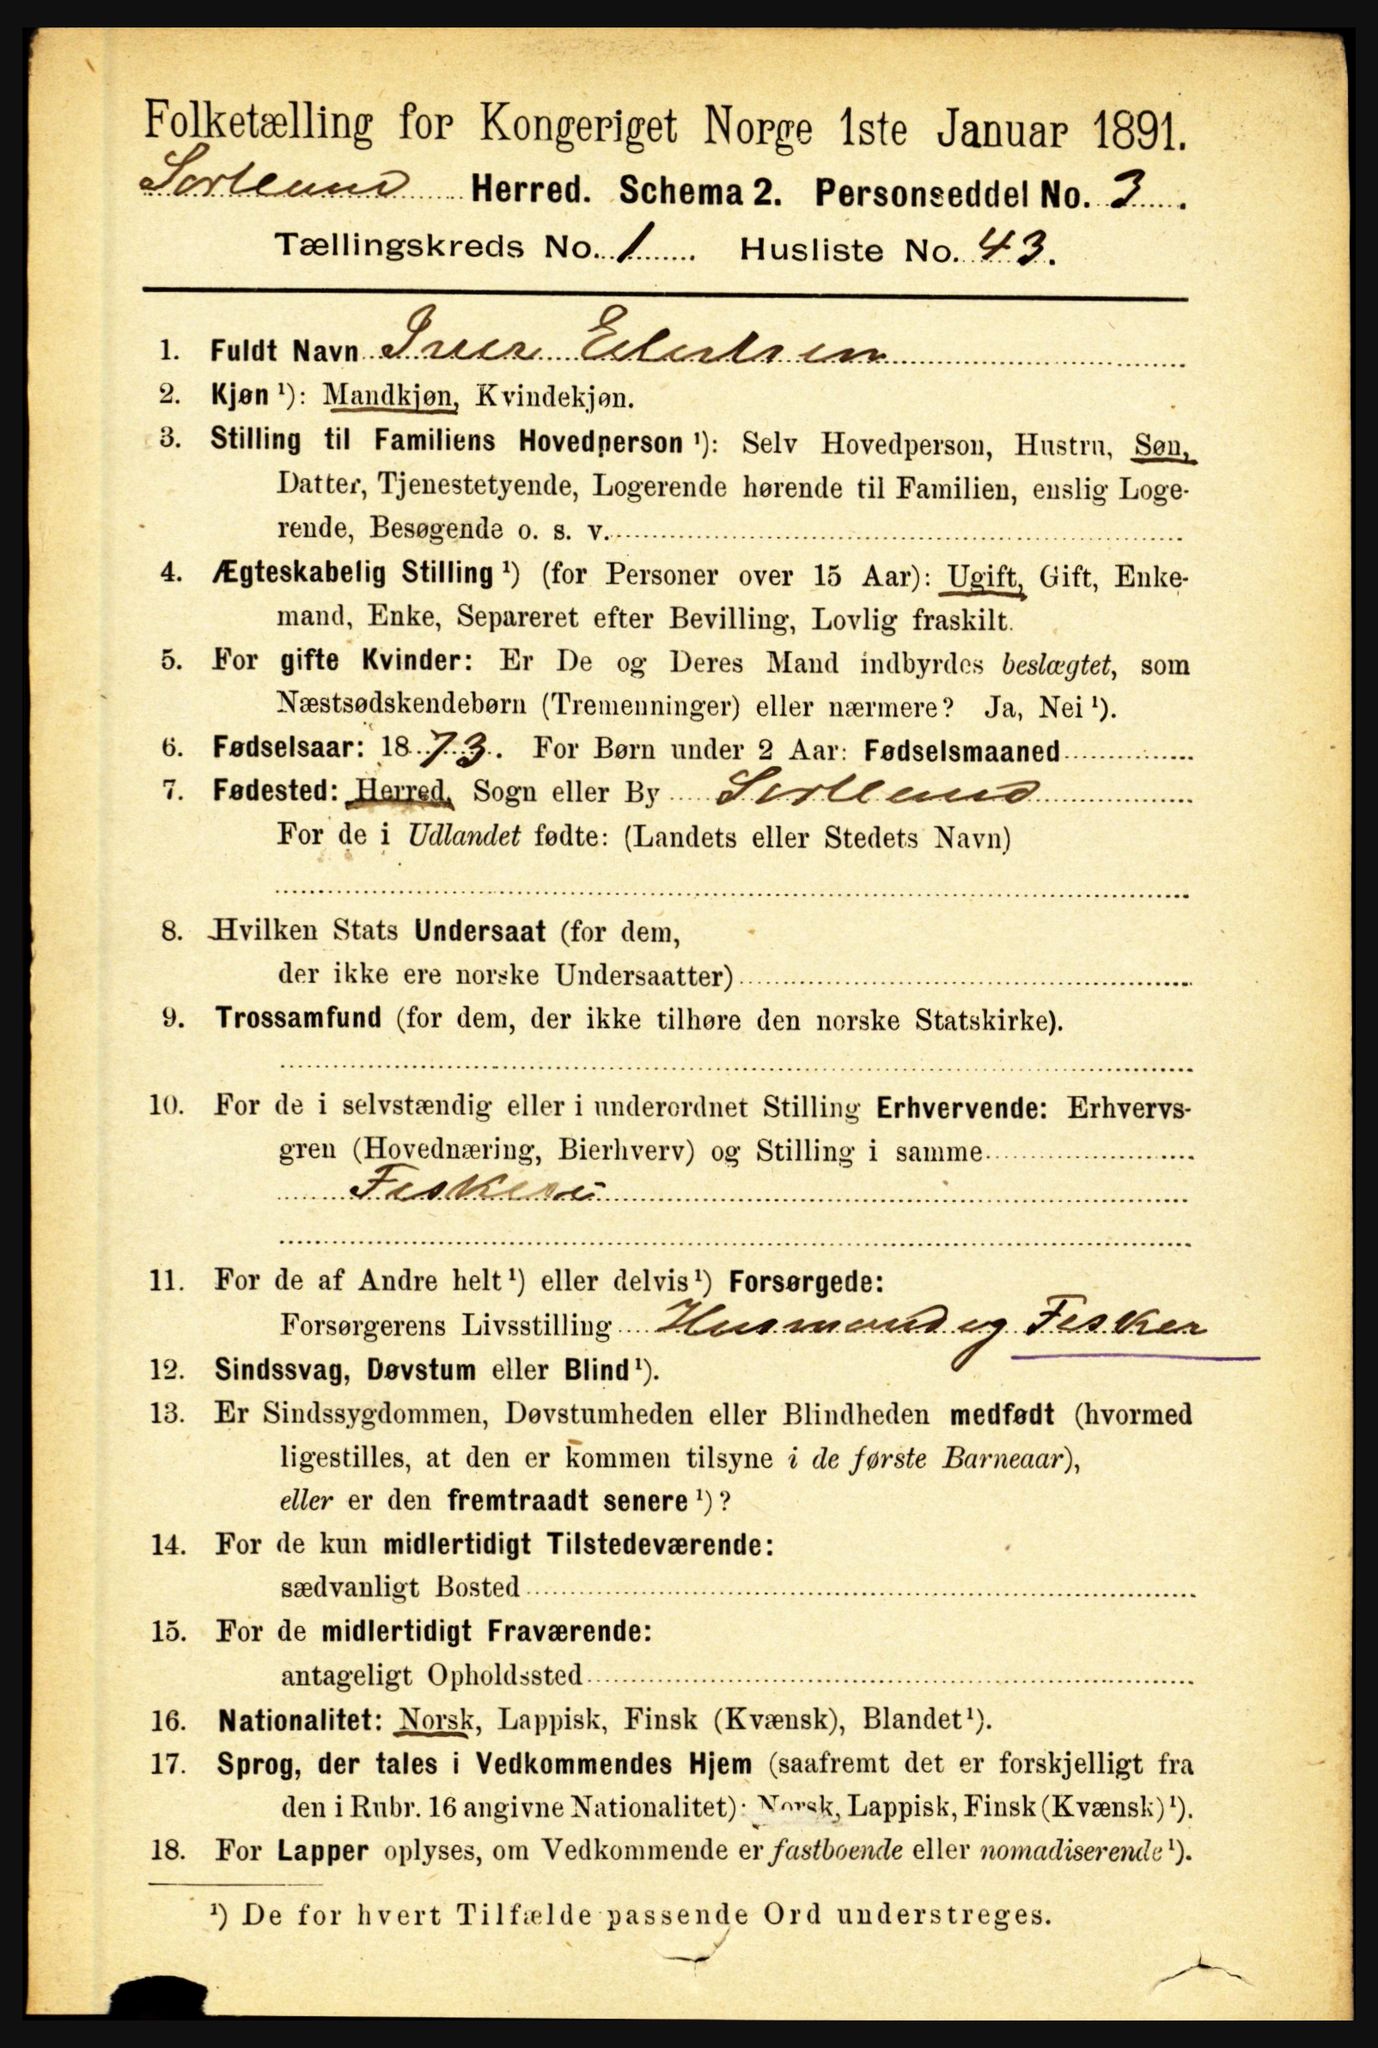 Folketælling for Kongeriget Norge 1ste Januar 1891.
Sortland Herred. Schema 2. Personseddel No. 3.
Tællingskreds No. 1 Husliste No. 43.
1. Fuldt Navn Iver Edertsen
2. Kjøn ¹): Mandkjøn, Kvindekjøn.
3. Stilling til Familiens Hovedperson ¹): Selv Hovedperson, Hustru, Søn,
Datter, Tjenestetyende, Logerende hørende til Familien, enslig Loge-
rende, Besøgende o. s. v.
4. Ægteskabelig Stilling ¹) (for Personer over 15 Aar): Ugift, Gift, Enke-
mand, Enke, Separeret efter Bevilling, Lovlig fraskilt.
5. For gifte Kvinder: Er De og Deres Mand indbyrdes beslægtet, som
Næstsødskendebørn (Tremenninger) eller nærmere? Ja, Nei ¹).
6. Fødselsaar: 1873. For Børn under 2 Aar: Fødselsmaaned
7. Fødested: Herred, Sogn eller By Sortland
For de i Udlandet fødte: (Landets eller Stedets Navn)
8. Hvilken Stats Undersaat (for dem,
der ikke ere norske Undersaatter)
9. Trossamfund (for dem, der ikke tilhøre den norske Statskirke).
10. For de i selvstændig eller i underordnet Stilling Erhvervende: Erhvervs-
gren (Hovednæring, Bierhverv) og Stilling i samme
Fiskeri
11. For de af Andre helt ¹) eller delvis ¹) Forsørgede:
Forsørgerens Livsstilling Husmand og Fisker
12. Sindssvag, Døvstum eller Blind ¹).
13. Er Sindssygdommen, Døvstumheden eller Blindheden medfødt (hvormed
ligestilles, at den er kommen tilsyne i de første Barneaar),
eller er den fremtraadt senere ¹)?
14. For de kun midlertidigt Tilstedeværende:
sædvanligt Bosted
15. For de midlertidigt Fraværende:
antageligt Opholdssted
16. Nationalitet: Norsk, Lappisk, Finsk (Kvænsk), Blandet ¹).
17. Sprog, der tales i Vedkommendes Hjem (saafremt det er forskjelligt fra
den i Rubr. 16 angivne Nationalitet): Norsk, Lappisk, Finsk (Kvænsk) ¹).
18. For Lapper oplyses, om Vedkommende er fastboende eller nomadiserende ¹).
¹) De for hvert Tilfælde passende Ord understreges.